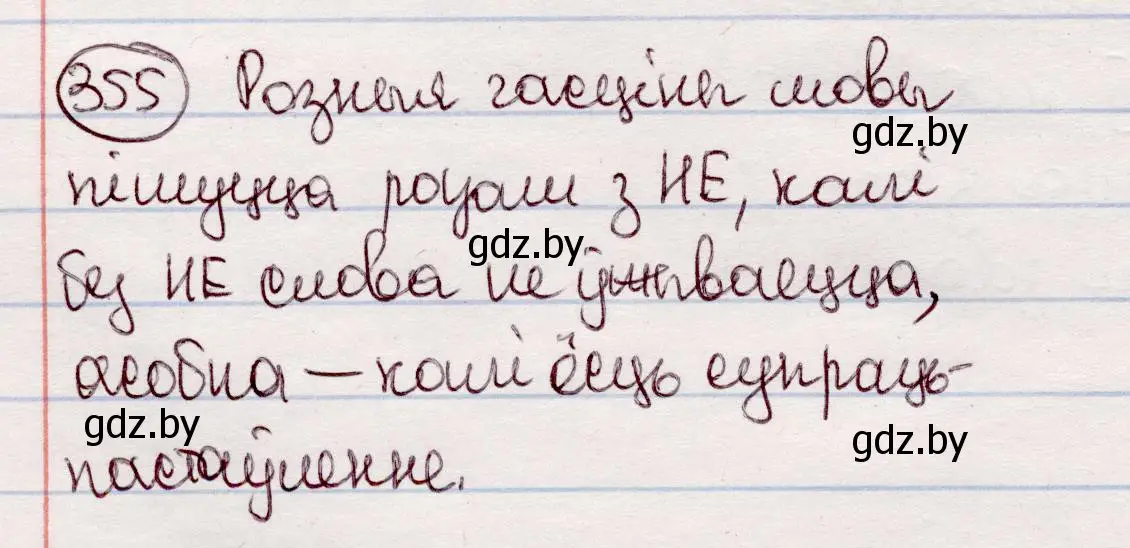 355 Розныя часціны мовы
gdz.by
пішуцца разам з НЕ, калі
gdz.by
без НЕ слова не ўжываецца,
асобна — калі ёсць супраць-
gdz.by
gdz.by
пастаўленне.